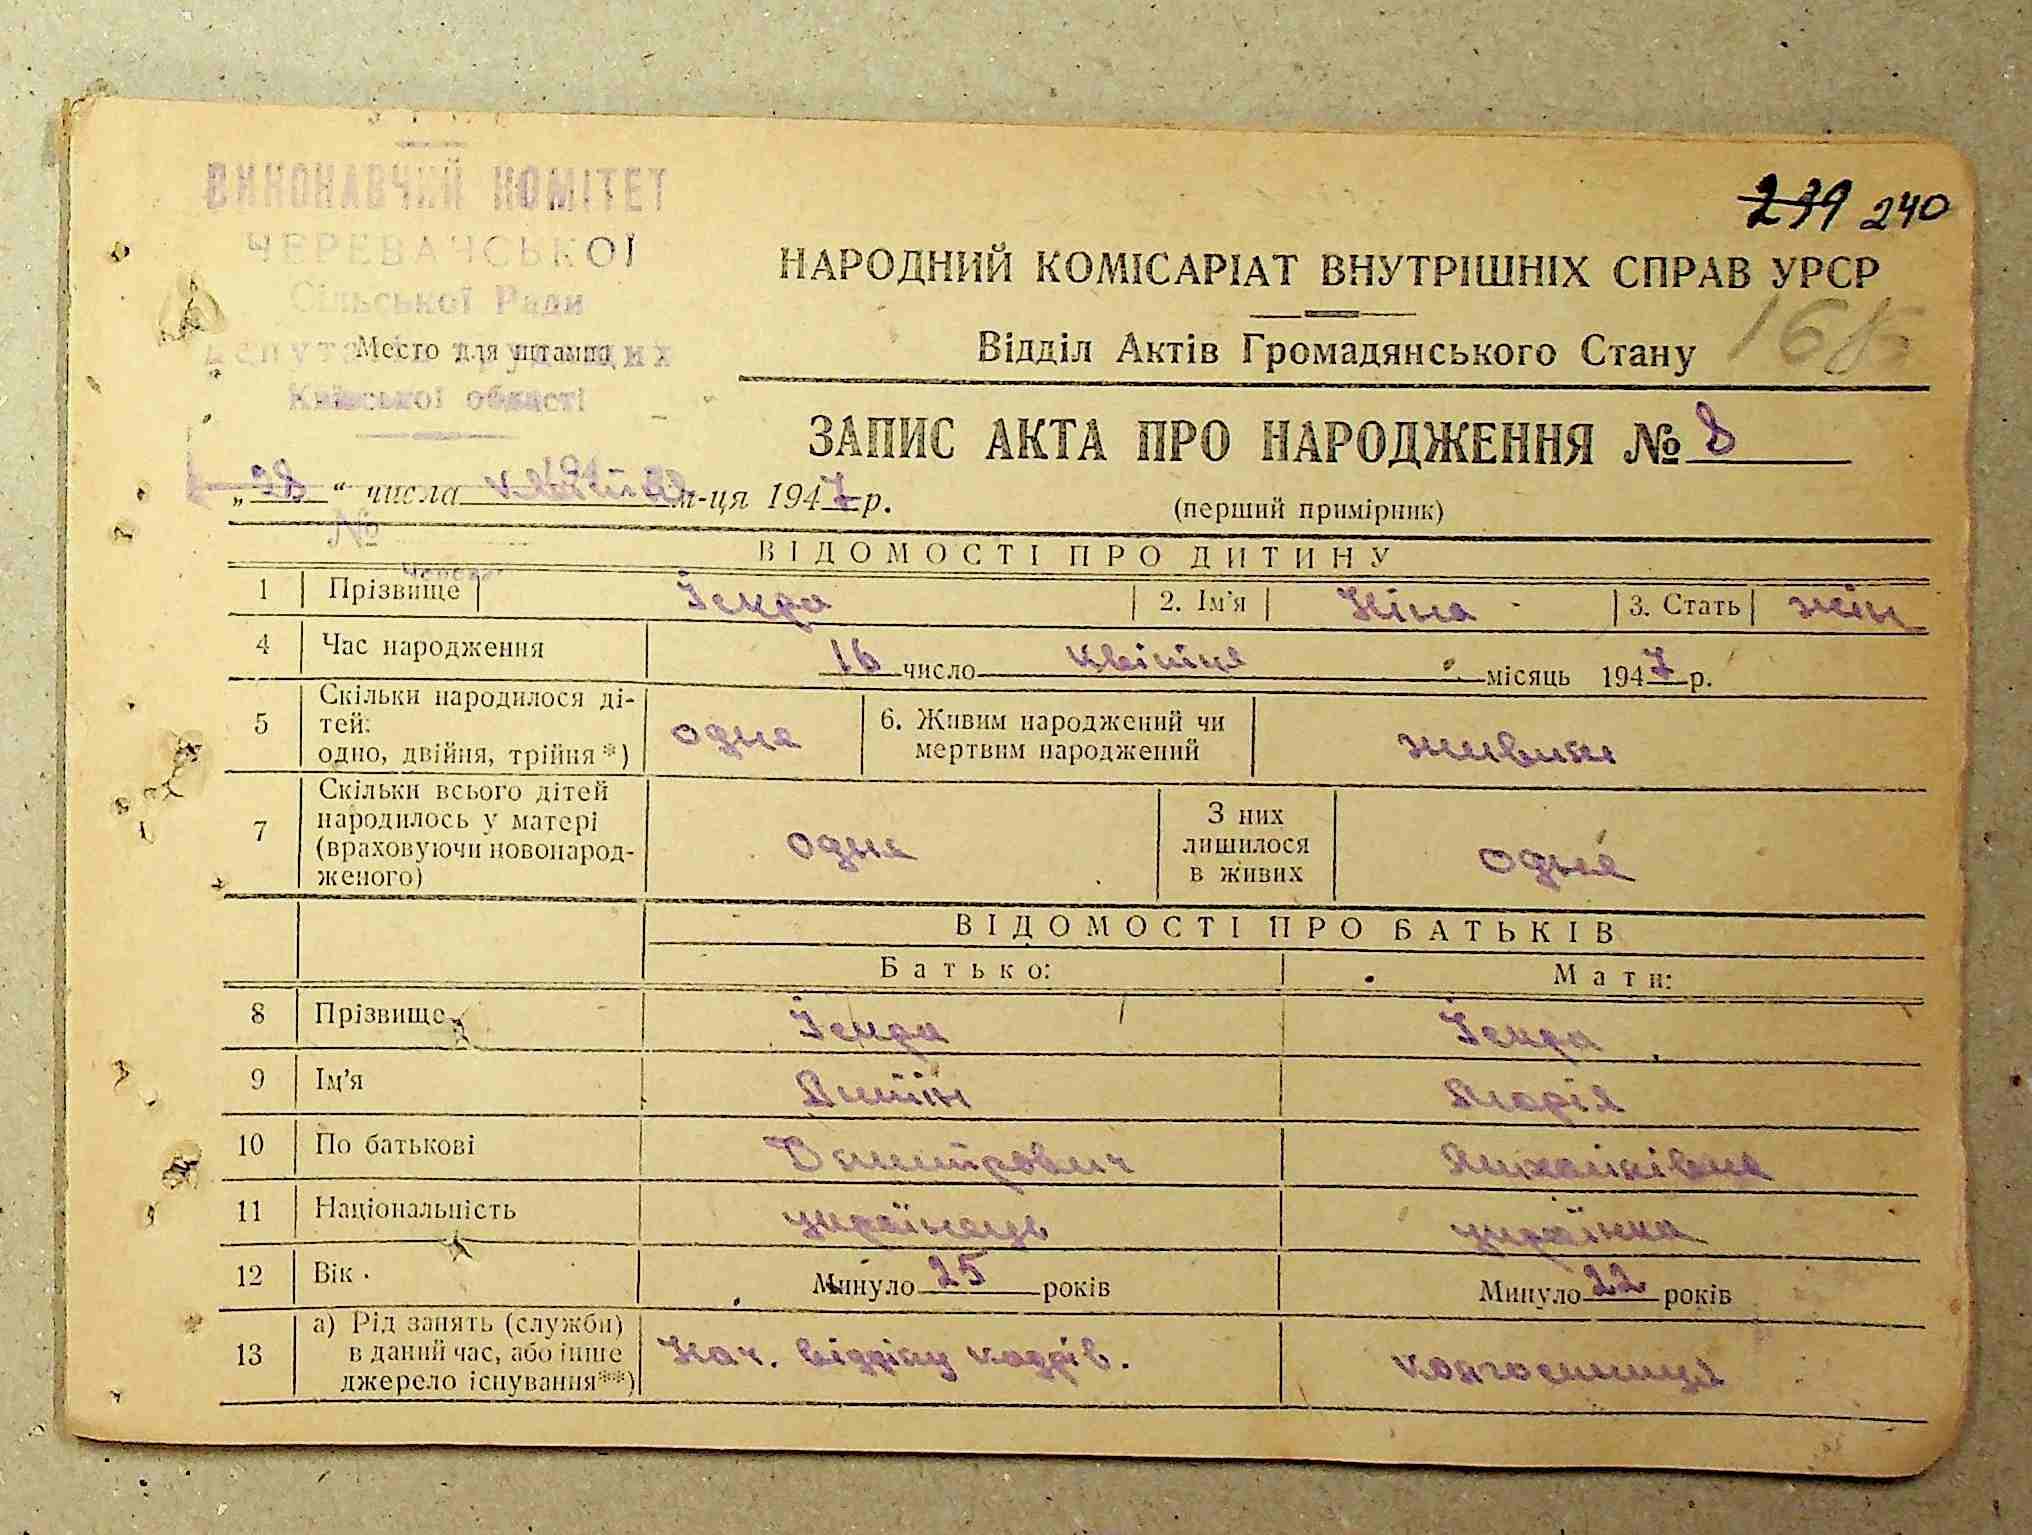 ВИКОНАВЧИЙ КОМІТЕТ
ЧЕРЕВАЧСЬКОЇ
Сільської Ради
Место для штампа
Київської області
239 240
НАРОДНИЙ КОМІСАРІАТ ВНУТРІШНІХ СПРАВ УРСР
168
Відділ Актів Громадянського Стану
ЗАПИС АКТА ПРО НАРОДЖЕННЯ № 8
„28“ числа квітня м-ця 1947 р.
(перший примірник)
№
ВІДОМОСТІ ПРО ДИТИНУ
1 Прізвище Іскра 2. Ім'я Ніна 3. Стать жін
4 Час народження 16 число квітня місяць 1947 р.
5 Скільки народилося ді-
тей:
одно, двійня, трійня*) одна 6. Живим народжений чи
мертвим народжений живим
7 Скільки всього дітей
народилось у матері
(враховуючи новонарод-
женого) одна З них
лишилося
в живих одна
ВІДОМОСТІ ПРО БАТЬКІВ
Батько: Мати:
8 Прізвище Іскра Іскра
9 Ім'я Антін Марія
10 По батькові Дмитрович Михайлівна
11 Національність українець українка
12 Вік Минуло 25 років Минуло 22 років
13 а) Рід занять (служби)
в даний час, або інше
джерело існування**) Нач. відділу кадрів. колгоспниця